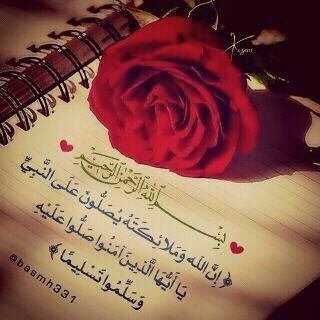 بسم الله الرحمن الرحيم
﴿ إِنَّ اللَّهَ وَمَلَائِكَتَهُ يُصَلُّونَ عَلَى النَّبِيِّ
يَا أَيُّهَا الَّذِينَ آمَنُوا صَلُّوا عَلَيْهِ
وَسَلِّمُوا تَسْلِيمًا ﴾
@basmh331